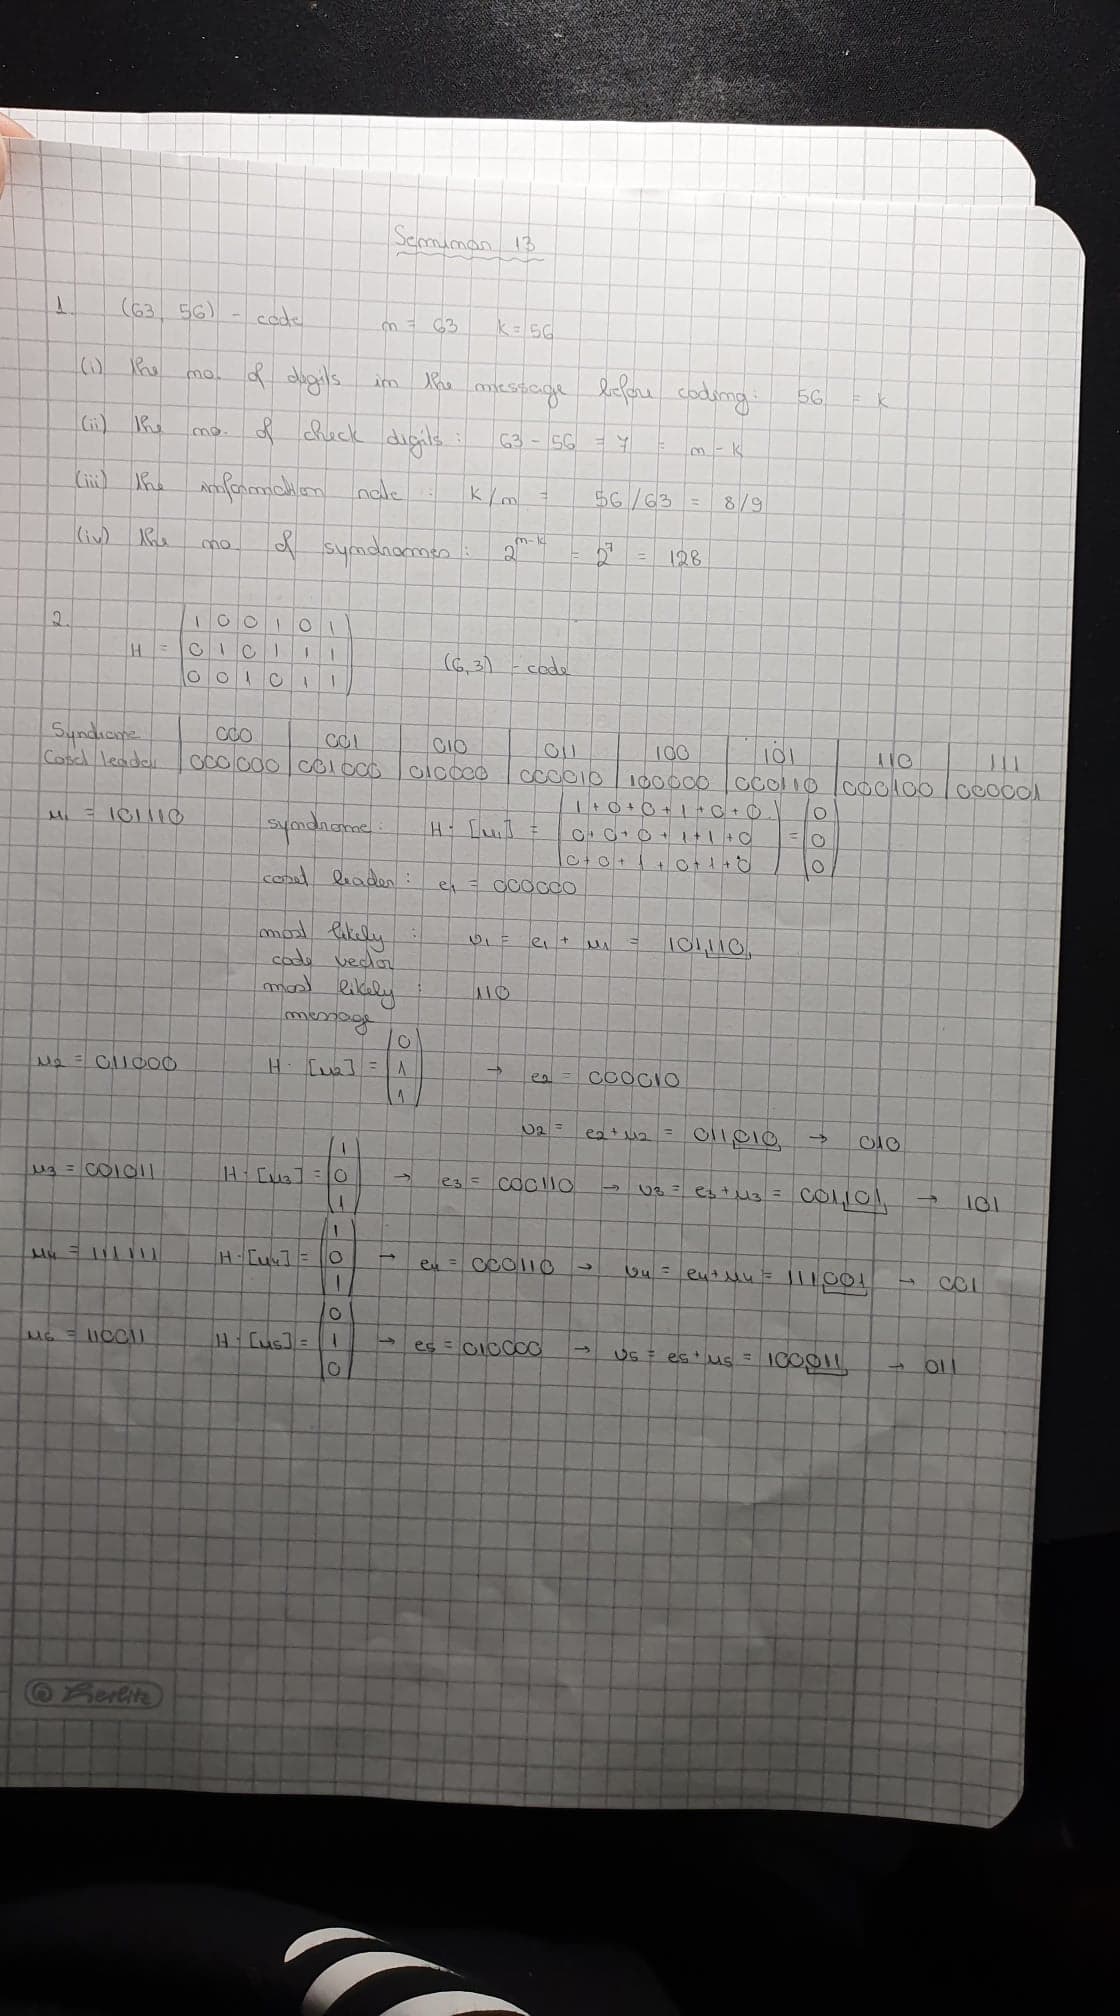 Seminar 13
1. (63, 56) - code n = 63 k = 56
(i) the no. of digits in the message before coding: 56 = k
(ii) the no. of check digits: 63 - 56 = 7 = n - k
(iii) the information rate: k/n = 56/63 = 8/9
(iv) the no. of syndromes: 2^{n-k} = 2^7 = 128
2.
1 0 0 1 0 1
H = 0 1 0 1 1 1 (6,3) - code
0 0 1 0 1 1
Syndrome | 000 | 001 | 010 | 011 | 100 | 101 | 110 | 111
Coset leader | 000000 | 001000 | 010000 | 000010 | 100000 | 000110 | 000100 | 000001
u1 = 101110 syndrome: H · [u1] = (1+0+0+1+0+0 / 0+0+0+1+1+0 / 0+0+1+0+1+0) = (0 / 0 / 0)
coset leader: e1 = 000000
most likely : v1 = e1 + u1 = 101110
code vector
most likely : 110
message
u2 = 011000 H · [u2] = (0 / 1 / 1) → e2 = 000010
v2 = e2 + u2 = 011010 → 010
u3 = 001011 H · [u3] = (1 / 0 / 1) → e3 = 000110 → v3 = e3 + u3 = 001101 → 101
u4 = 111111 H · [u4] = (1 / 0 / 1) → e4 = 000110 → v4 = e4 + u4 = 111001 → 001
u5 = 110011 H · [u5] = (0 / 1 / 0) → e5 = 010000 → v5 = e5 + u5 = 100011 → 011
Berlitz